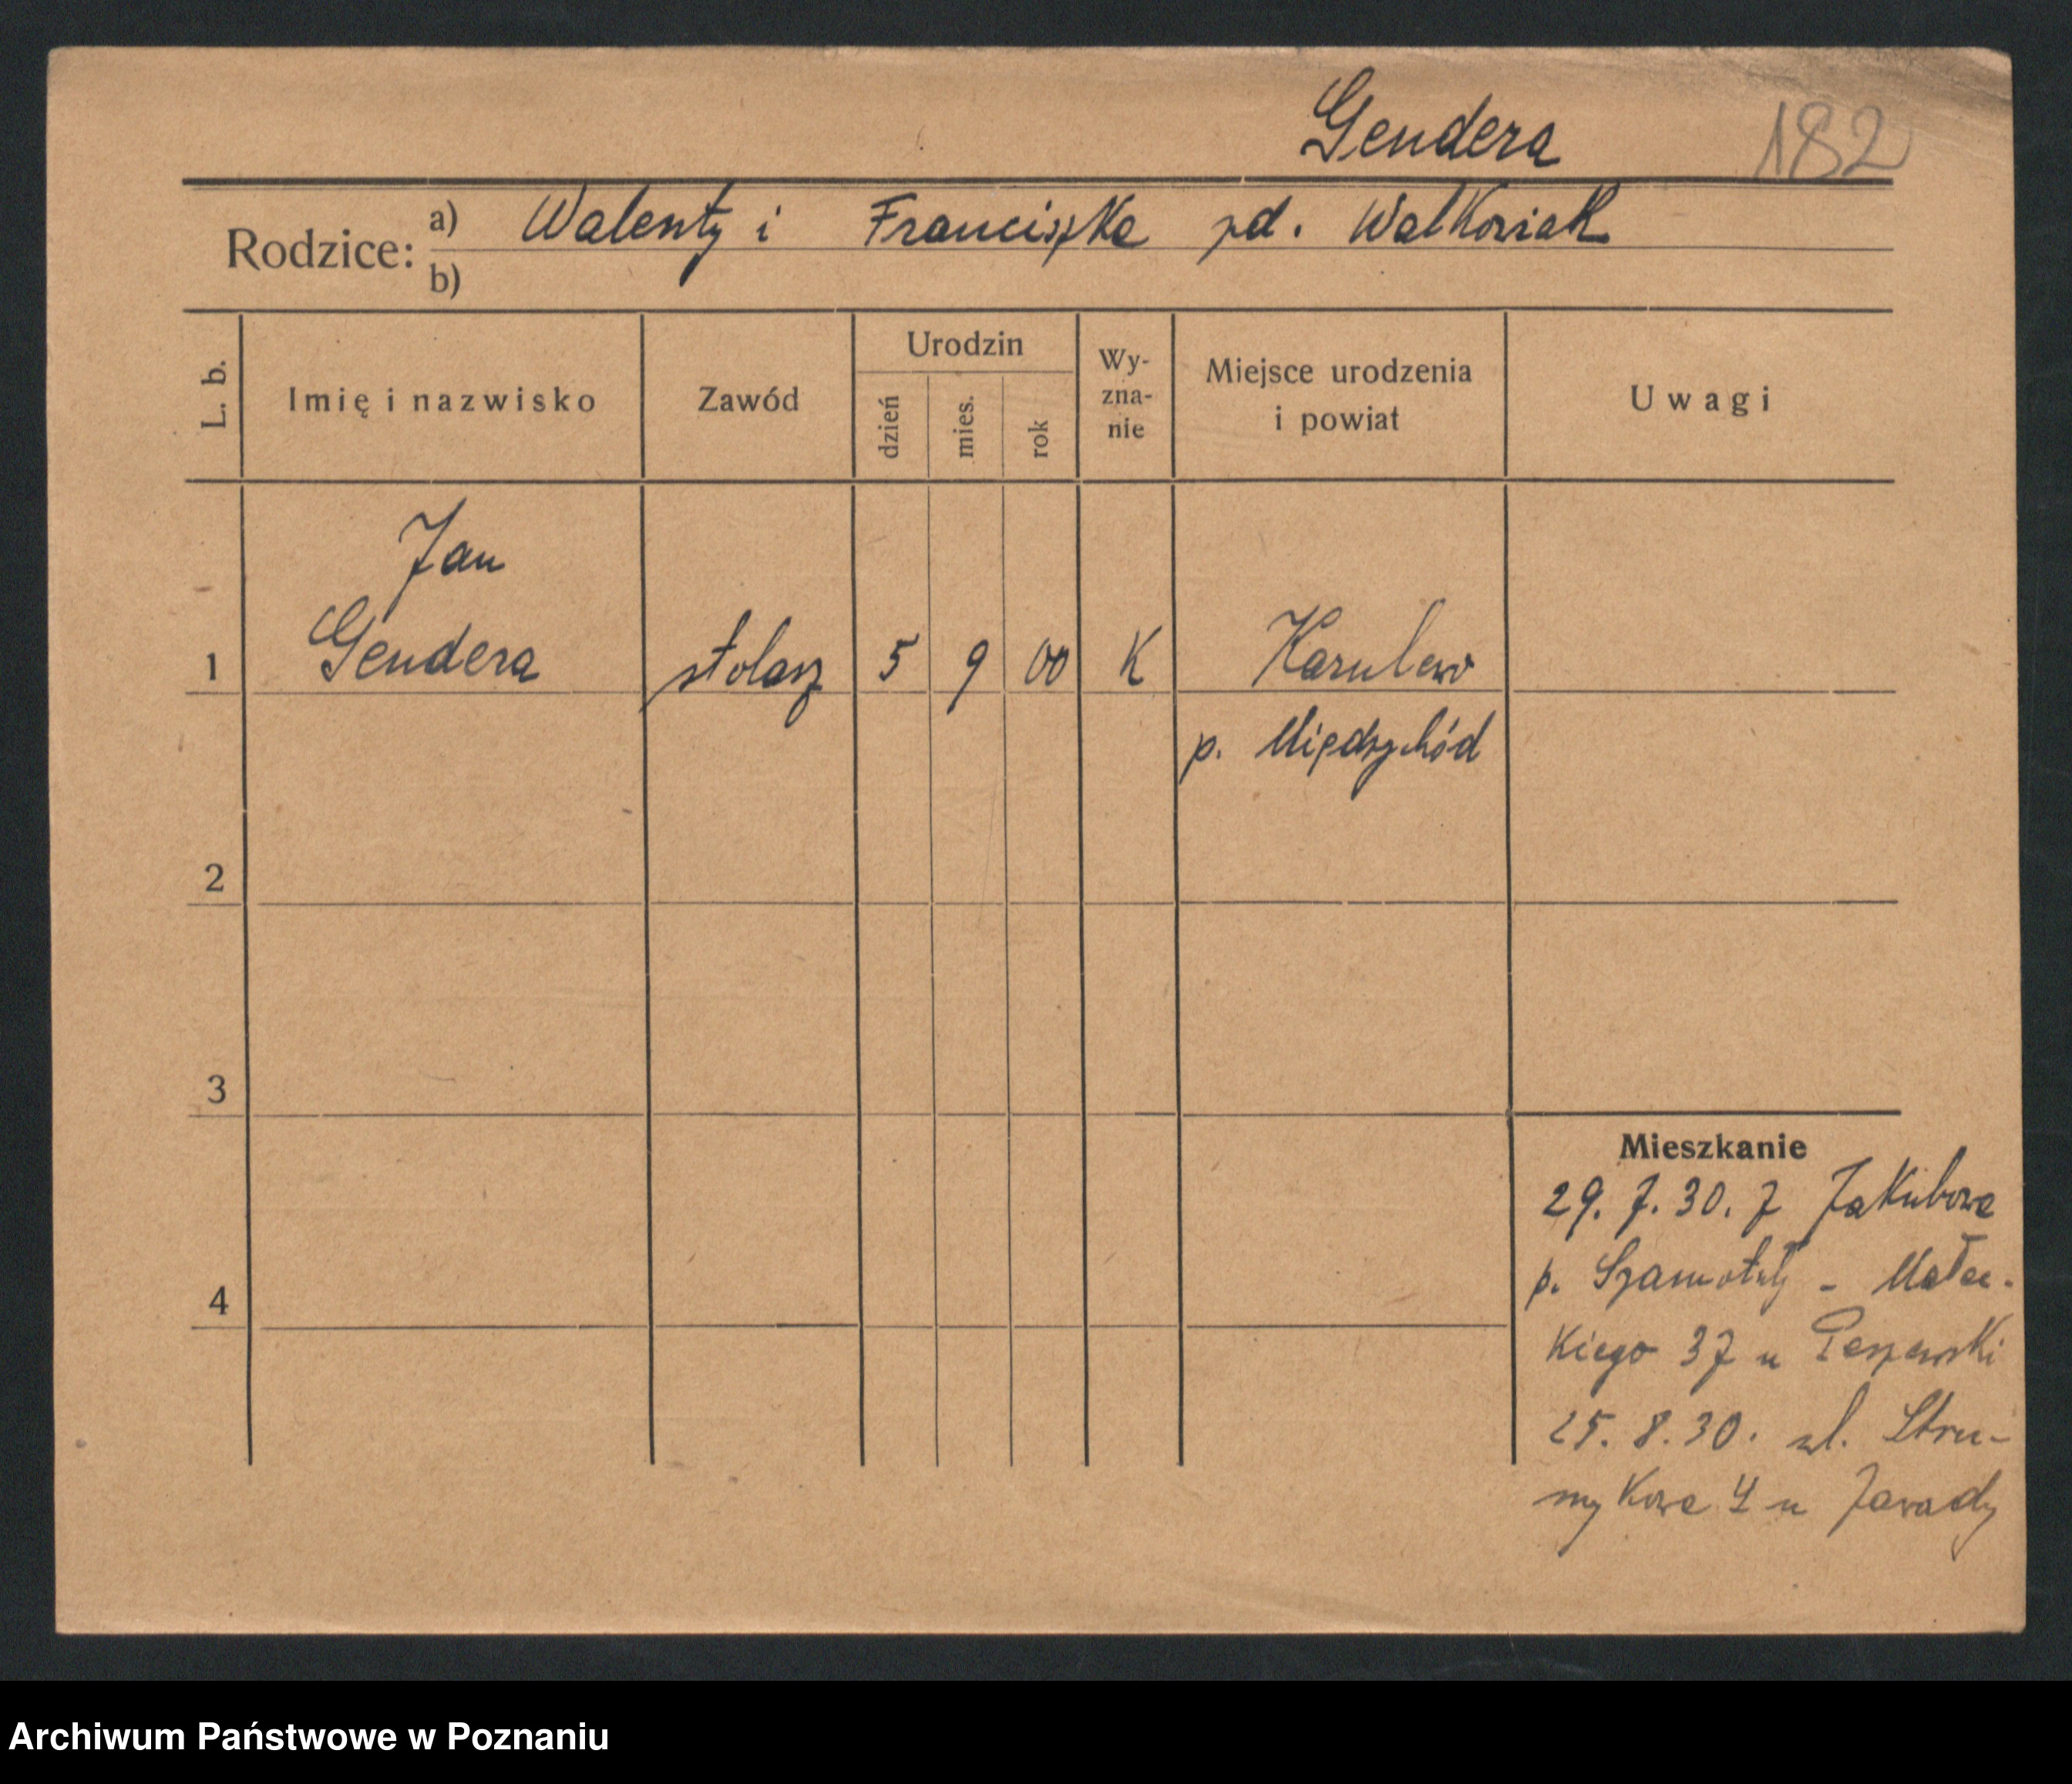 Gendera 182
Rodzice: a) Walenty i Franciszka zd. Walkowiak
b)
L. b. Imię i nazwisko Zawód Urodzin dzień mies. rok Wy-zna-nie Miejsce urodzenia i powiat Uwagi
Jan
1 Gendera stolarz 5 9 00 K
p. Międzychód
2
3
Mieszkanie
29. 7. 30. z Jakubowa
p. Szamotuły - Małec-
4
kiego 37 u
25. 8. 30. ul. Stru-
mykowa 4 u Zawady
Archiwum Państwowe w Poznaniu